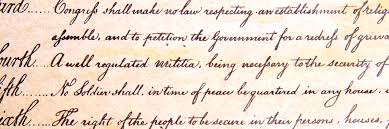 ard..... Congress shall make no law respecting an establishment of relig
assemble, and to petition the Government for a redress of grieva
ourth.... A well regulated militia, being necessary to the security of
ifth..... No Soldier shall, in time of peace be quartered in any house, w
ixth..... The right of the people to be secure in their persons, houses,